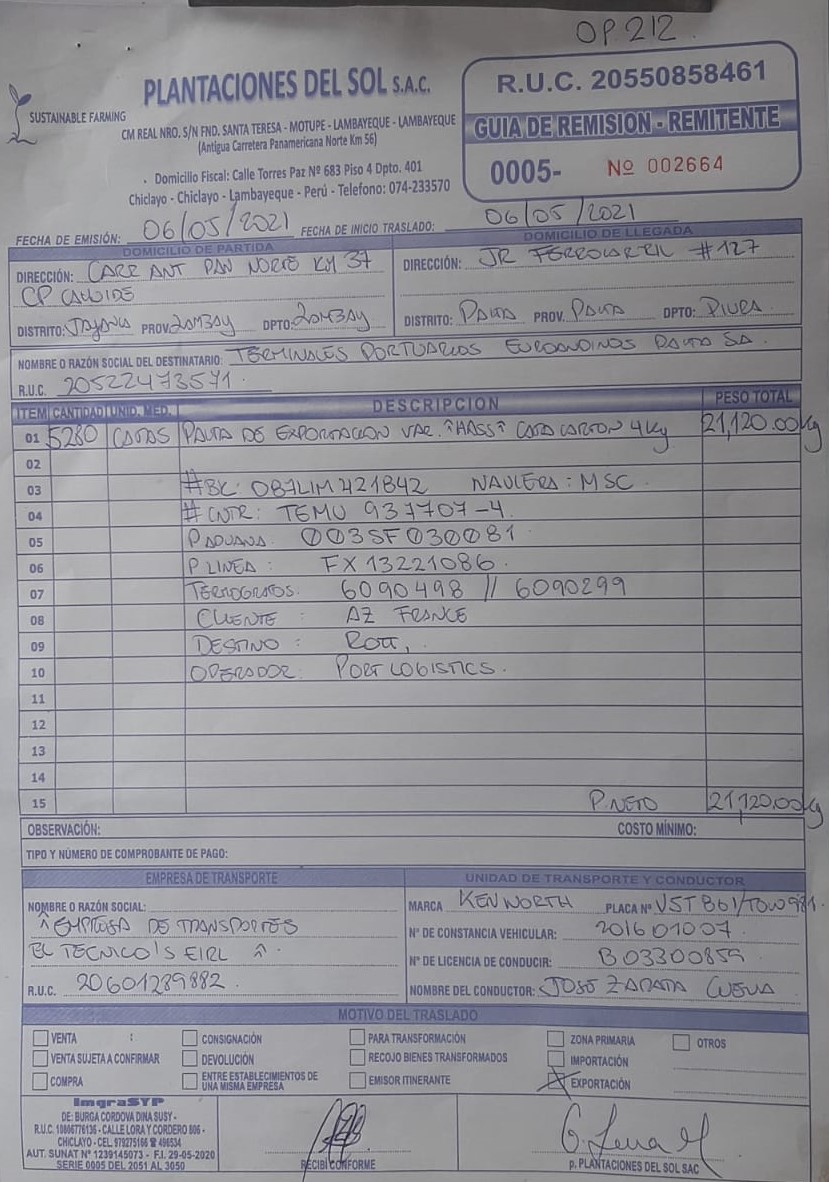 OP. 212.
SUSTAINABLE FARMING
PLANTACIONES DEL SOL S.A.C.
CM REAL NRO. S/N FND. SANTA TERESA - MOTUPE - LAMBAYEQUE - LAMBAYEQUE
(Antigua Carretera Panamericana Norte Km 56)
Domicilio Fiscal: Calle Torres Paz Nº 683 Piso 4 Dpto. 401
Chiclayo - Chiclayo - Lambayeque - Perú - Telefono: 074-233570
R.U.C. 20550858461
GUIA DE REMISIÓN - REMITENTE
0005- Nº 002664
FECHA DE EMISIÓN: 06/05/2021 FECHA DE INICIO TRASLADO: 06/05/2021
DOMICILIO DE PARTIDA
DIRECCIÓN: CARR ANT PAN NORTE KM 37
CP
DISTRITO: JAYANCA PROV. DPTO:
DOMICILIO DE LLEGADA
DIRECCIÓN: JR FERROCARRIL #127
DISTRITO: PAITA PROV. PAITA DPTO: PIURA
NOMBRE O RAZÓN SOCIAL DEL DESTINATARIO: TERMINALES PORTUARIOS EUROANDINOS PAITA SA.
R.U.C. 20522473571.
ITEM CANTIDAD UNID. MED. DESCRIPCION PESO TOTAL
01 5280 CAJAS PALTA DE EXPORTACION VAR. "HASS" CAJA CARTON 4Kg 21,120.00Kg
02
03 #BK: 087LIM421842 NAVIERA: MSC
04 # CNTR: TEMU 937707-4
05 P ADUANA: 003SF030081
06 P LINEA: FX13221086.
07 TERMOGRAFOS. 6090498 // 6090299
08 CLIENTE : AZ FRANCE
09 DESTINO : ROTT,
10 OPERADOR: PORT LOGISTICS.
11
12
13
14
15 P. NETO 21,120.00Kg
OBSERVACIÓN: COSTO MÍNIMO:
TIPO Y NÚMERO DE COMPROBANTE DE PAGO:
EMPRESA DE TRANSPORTE
NOMBRE O RAZÓN SOCIAL:
"EMPRESA DE TRANSPORTES
EL TECNICO'S EIRL"
R.U.C. 20601289882.
UNIDAD DE TRANSPORTE Y CONDUCTOR
MARCA KENWORTH PLACA Nº
Nº DE CONSTANCIA VEHICULAR: 201601007.
Nº DE LICENCIA DE CONDUCIR: B03300859
NOMBRE DEL CONDUCTOR: JOSE ZAPATA
MOTIVO DEL TRASLADO
VENTA : CONSIGNACIÓN PARA TRANSFORMACIÓN ZONA PRIMARIA OTROS
VENTA SUJETA A CONFIRMAR DEVOLUCIÓN RECOJO BIENES TRANSFORMADOS IMPORTACIÓN
COMPRA ENTRE ESTABLECIMIENTOS DE EMISOR ITINERANTE EXPORTACIÓN
UNA MISMA EMPRESA
ImgraSYP
DE: BURGA CORDOVA DINA SUSY -
R.U.C. 10806776136 - CALLE LORA Y CORDERO 806 -
CHICLAYO - CEL. 979275166 ☎ 496534
AUT. SUNAT Nº 1239145073 - F.I. 29-05-2020
SERIE 0005 DEL 2051 AL 3050
RECIBÍ CONFORME
p. PLANTACIONES DEL SOL SAC